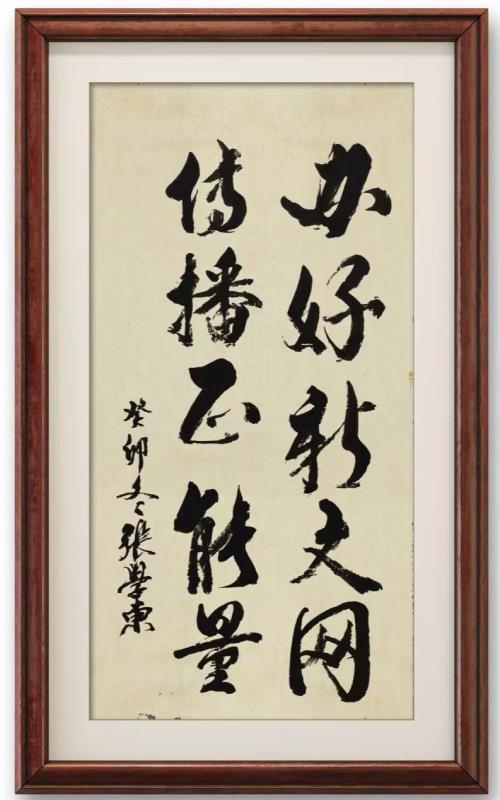 办好新文网
传播正能量
癸卯冬张学东